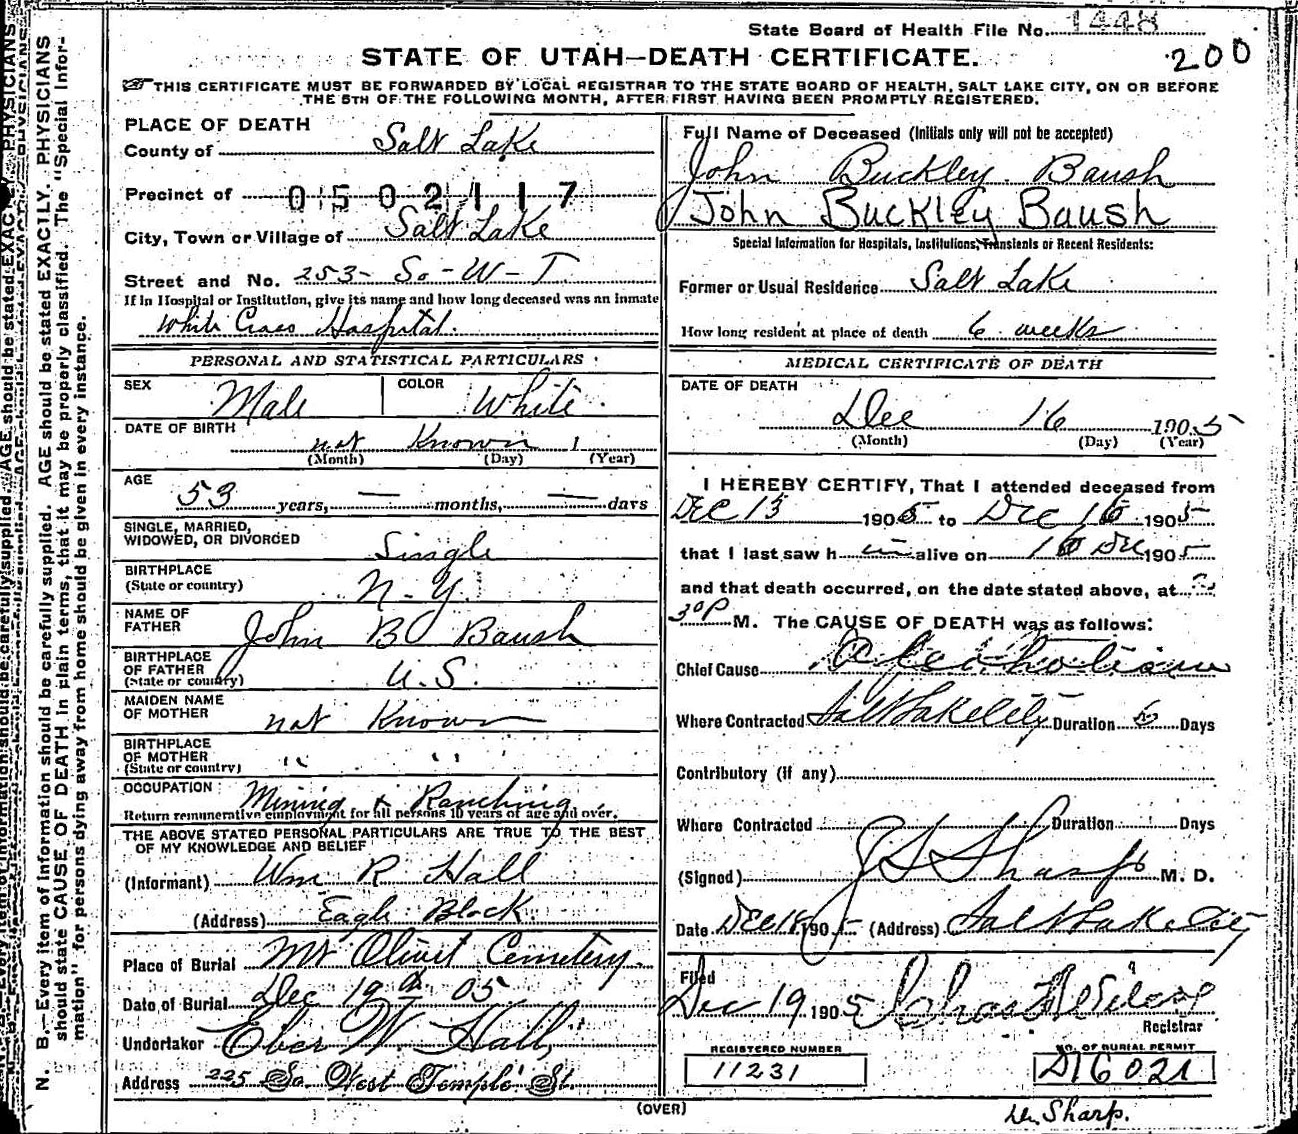 State Board of Health File No. 1448
200
STATE OF UTAH—DEATH CERTIFICATE.
THIS CERTIFICATE MUST BE FORWARDED BY LOCAL REGISTRAR TO THE STATE BOARD OF HEALTH, SALT LAKE CITY, ON OR BEFORE
THE 5TH OF THE FOLLOWING MONTH, AFTER FIRST HAVING BEEN PROMPTLY REGISTERED.
PLACE OF DEATH
County of Salt Lake
Precinct of 0502117
City, Town or Village of Salt Lake
Street and No. 253- So-W-T
If in Hospital or Institution, give its name and how long deceased was an inmate
White Cross Hospital.
PERSONAL AND STATISTICAL PARTICULARS
SEX Male COLOR White.
DATE OF BIRTH not Known 1
(Month) (Day) (Year)
AGE
53 years, — months, — days
SINGLE, MARRIED,
WIDOWED, OR DIVORCED Single
BIRTHPLACE
(State or country) N-Y.
NAME OF
FATHER John B Baush
BIRTHPLACE
OF FATHER
(State or country) U.S.
MAIDEN NAME
OF MOTHER not Known
BIRTHPLACE
OF MOTHER
(State or country) " "
OCCUPATION Mining & Ranching
Return remunerative employment for all persons 10 years of age and over.
THE ABOVE STATED PERSONAL PARTICULARS ARE TRUE TO THE BEST
OF MY KNOWLEDGE AND BELIEF
(Informant) Wm R Hall
(Address) Eagle Block
Place of Burial Mt Olivet Cemetery.
Date of Burial Dec 19 05
Undertaker Eber W. Hall,
Address 225 So West Temple St.
Full Name of Deceased (Initials only will not be accepted)
John Buckley Baush
John Buckley Baush
Special Information for Hospitals, Institutions, Transients or Recent Residents:
Former or Usual Residence Salt Lake
How long resident at place of death 6 weeks
MEDICAL CERTIFICATE OF DEATH
DATE OF DEATH
Dec 16 1905
(Month) (Day) (Year)
I HEREBY CERTIFY, That I attended deceased from
Dec 13 1905 to Dec 16 1905
that I last saw h im alive on 16 Dec 1905
and that death occurred, on the date stated above, at
30 P M. The CAUSE OF DEATH was as follows:
Chief Cause Alcoholism
Where Contracted Salt Lake City Duration 6 Days
Contributory (if any)
Where Contracted Duration Days
(Signed) J S Sharp M. D.
Date Dec 18 1905 (Address) Salt Lake City
Filed
Dec 19 1905 Chas
Registrar
REGISTERED NUMBER
11231
NO. OF BURIAL PERMIT
D16021
(OVER)
Dr. Sharp.
N. B.—Every item of information should be carefully supplied. AGE should be stated EXACTLY. PHYSICIANS
should state CAUSE OF DEATH in plain terms, that it may be properly classified. The "Special Infor-
mation" for persons dying away from home should be given in every instance.